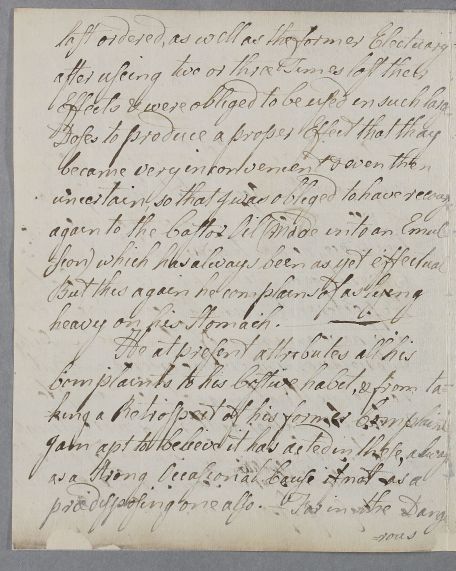 last ordered, as well as the former Electuary
after useing two or three Times lost their
Effects & were obliged to be used in such large
Doses to produce a proper Effect that they
became very inconvenient & even then
uncertain, so that I was obliged to have recourse
again to the Castor Oil (made into an Emul-
sion) which has always been as yet effectual
But this again he complains of as being
heavy on his Stomach. —
He at present attributes all his
Complaints to his Costive habit, & from ta-
king a Retrospect of his former Complaints
I am apt to believe it has acted in these, always
as a strong Occasional Cause if not as a
prædisposing one also. — For in the Dange
-rous